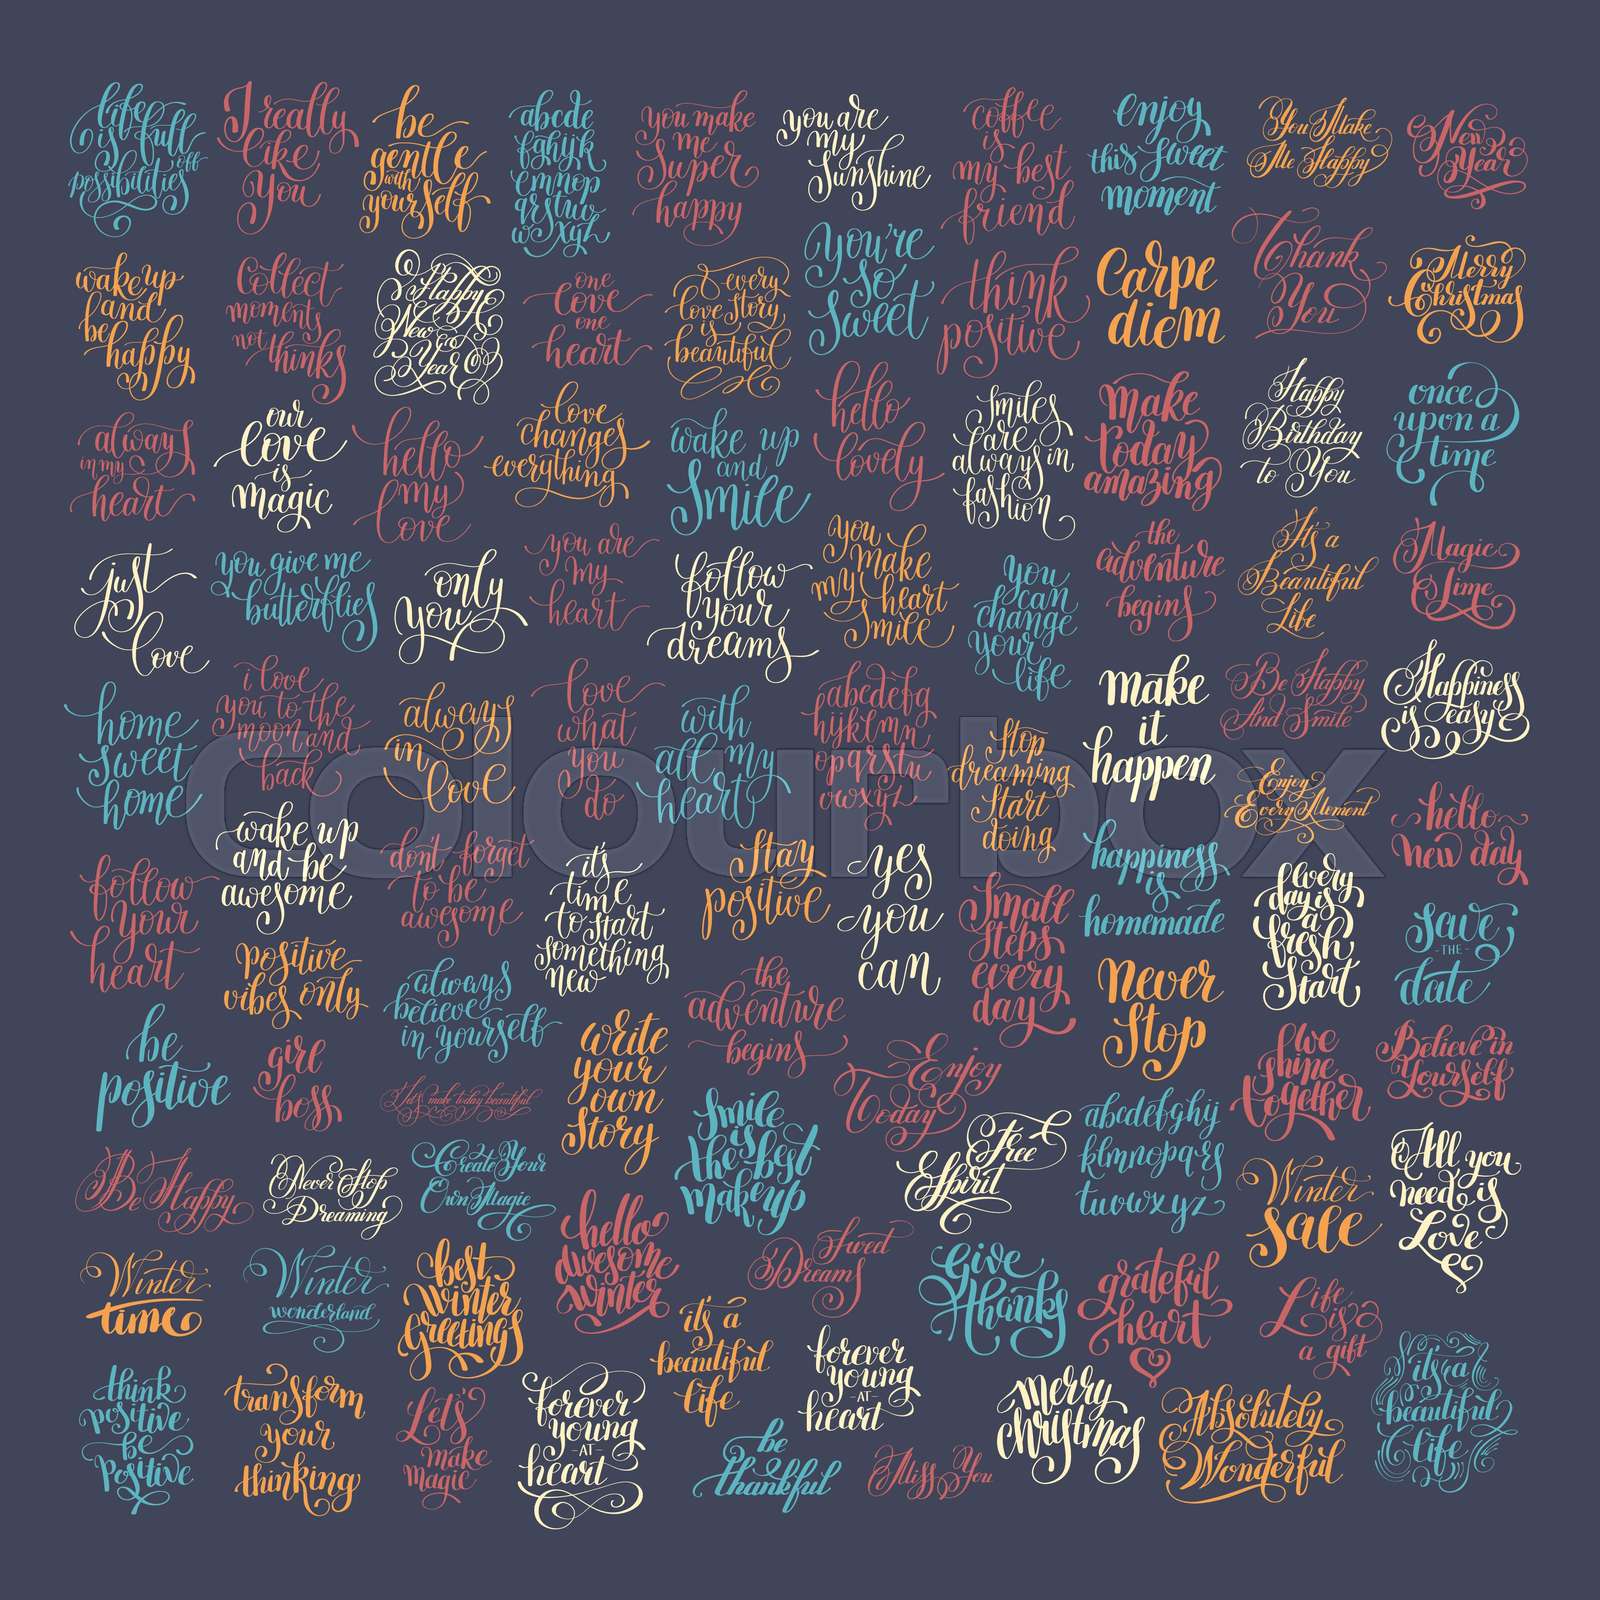 life
is full
off
possibilities
I really
like
you
be
gentle
with
yourself
abcde
fghijk
lmnop
qrstuv
wxyz
you make
me
super
happy
you are
my
sunshine
coffee
is
my best
friend
enjoy
this sweet
moment
You Make
Me Happy
New
Year
wake up
and
be
happy
collect
moments
not
thinks
Happy
New
Year
one
love
one
heart
every
love story
is
beautiful
you're
so
sweet
think
positive
Carpe
diem
Thank
You
Merry
Christmas
always
in my
heart
our
love
is
magic
hello
my
love
love
changes
everything
wake up
and
smile
hello
lovely
smiles
are
always in
fashion
make
today
amazing
Happy
Birthday
to You
once
upon a
time
just
love
you give me
butterflies
only
you
you are
my
heart
follow
your
dreams
you
make
my heart
smile
you
can
change
your
life
the
adventure
begins
It's a
Beautiful
Life
Magic
Time
home
sweet
home
i love
you to the
moon and
back
always
in
love
love
what
you
do
with
all my
heart
abcdefg
hijklmn
opqrstu
vwxyz
stop
dreaming
start
doing
make
it
happen
Be Happy
And Smile
Happiness
is easy
colourbox
follow
your
heart
wake up
and be
awesome
don't forget
to be
awesome
it's
time
to start
something
new
stay
positive
yes
you
can
small
steps
every
day
happiness
is
homemade
Enjoy
Every Moment
every
day is
a
fresh
start
hello
new day
save
THE
date
positive
vibes only
always
believe
in yourself
the
adventure
begins
never
stop
be
positive
girl
boss
Let's make today beautiful
write
your
own
story
Enjoy
Today
we
shine
together
Believe in
Yourself
Be Happy
Never Stop
Dreaming
Create Your
Own Magic
smile
is
the best
makeup
Free
Spirit
abcdefghij
klmnopqrs
tuvwxyz
Winter
sale
All you
need is
Love
Winter
time
Winter
wonderland
best
winter
greetings
hello
awesome
winter
Sweet
Dreams
give
thanks
grateful
heart
Life
is
a gift
think
positive
be
positive
transform
your
thinking
Let's
make
magic
forever
young
AT
heart
it's a
beautiful
life
be
thankful
forever
young
AT
heart
Miss You
merry
christmas
Absolutely
Wonderful
it's a
beautiful
life